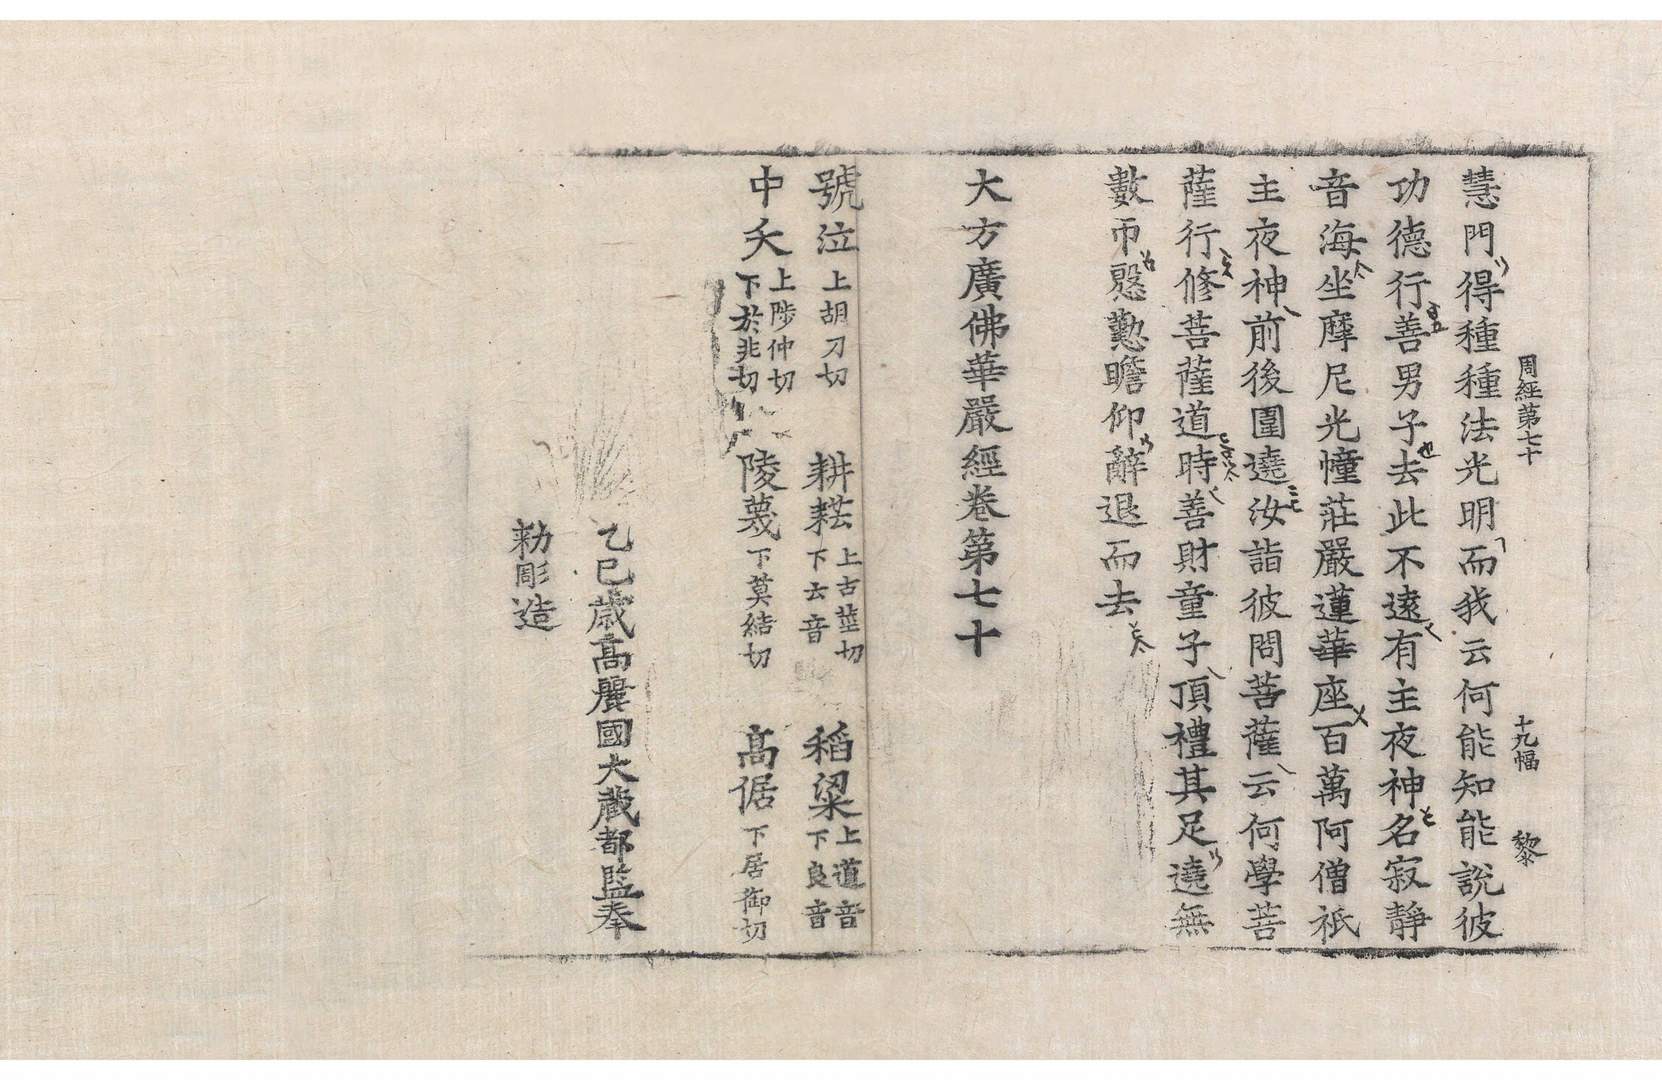 周經第七十 十九幅 黎
慧門得種種法光明而我云何能知能說彼
功德行善男子去此不遠有主夜神名寂靜
音海坐摩尼光幢莊嚴蓮華座百萬阿僧祇
主夜神前後圍遶汝詣彼問菩薩云何學菩
薩行修菩薩道時善財童子頂禮其足遶無
數帀慇懃瞻仰辭退而去
大方廣佛華嚴經卷第七十
號泣 上胡刀切 耕耘 上古莖切 下云音 稻粱 上道音 下良音
中夭 上陟仲切 下於兆切 陵蔑 下莫結切 高倨 下居御切
乙巳歲高麗國大藏都監奉
勑彫造